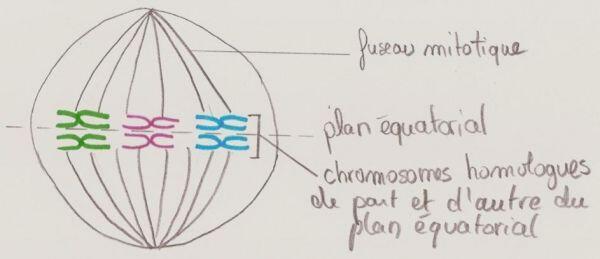 fuseau mitotique
plan équatorial
chromosomes homologues
de part et d'autre du
plan équatorial